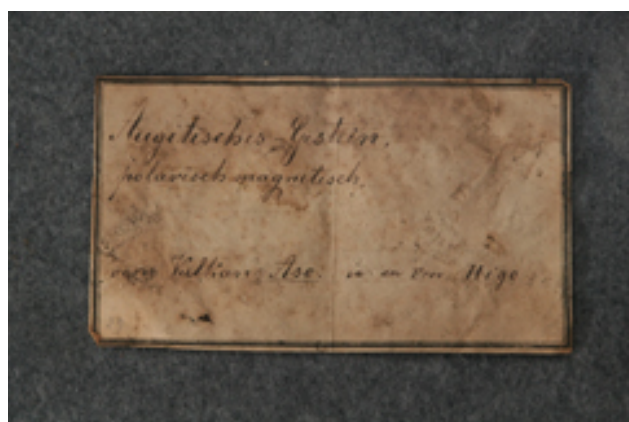 Augitisches Gestein,
polarisch magnetisch,
vom Vulkan Aso. in Higo